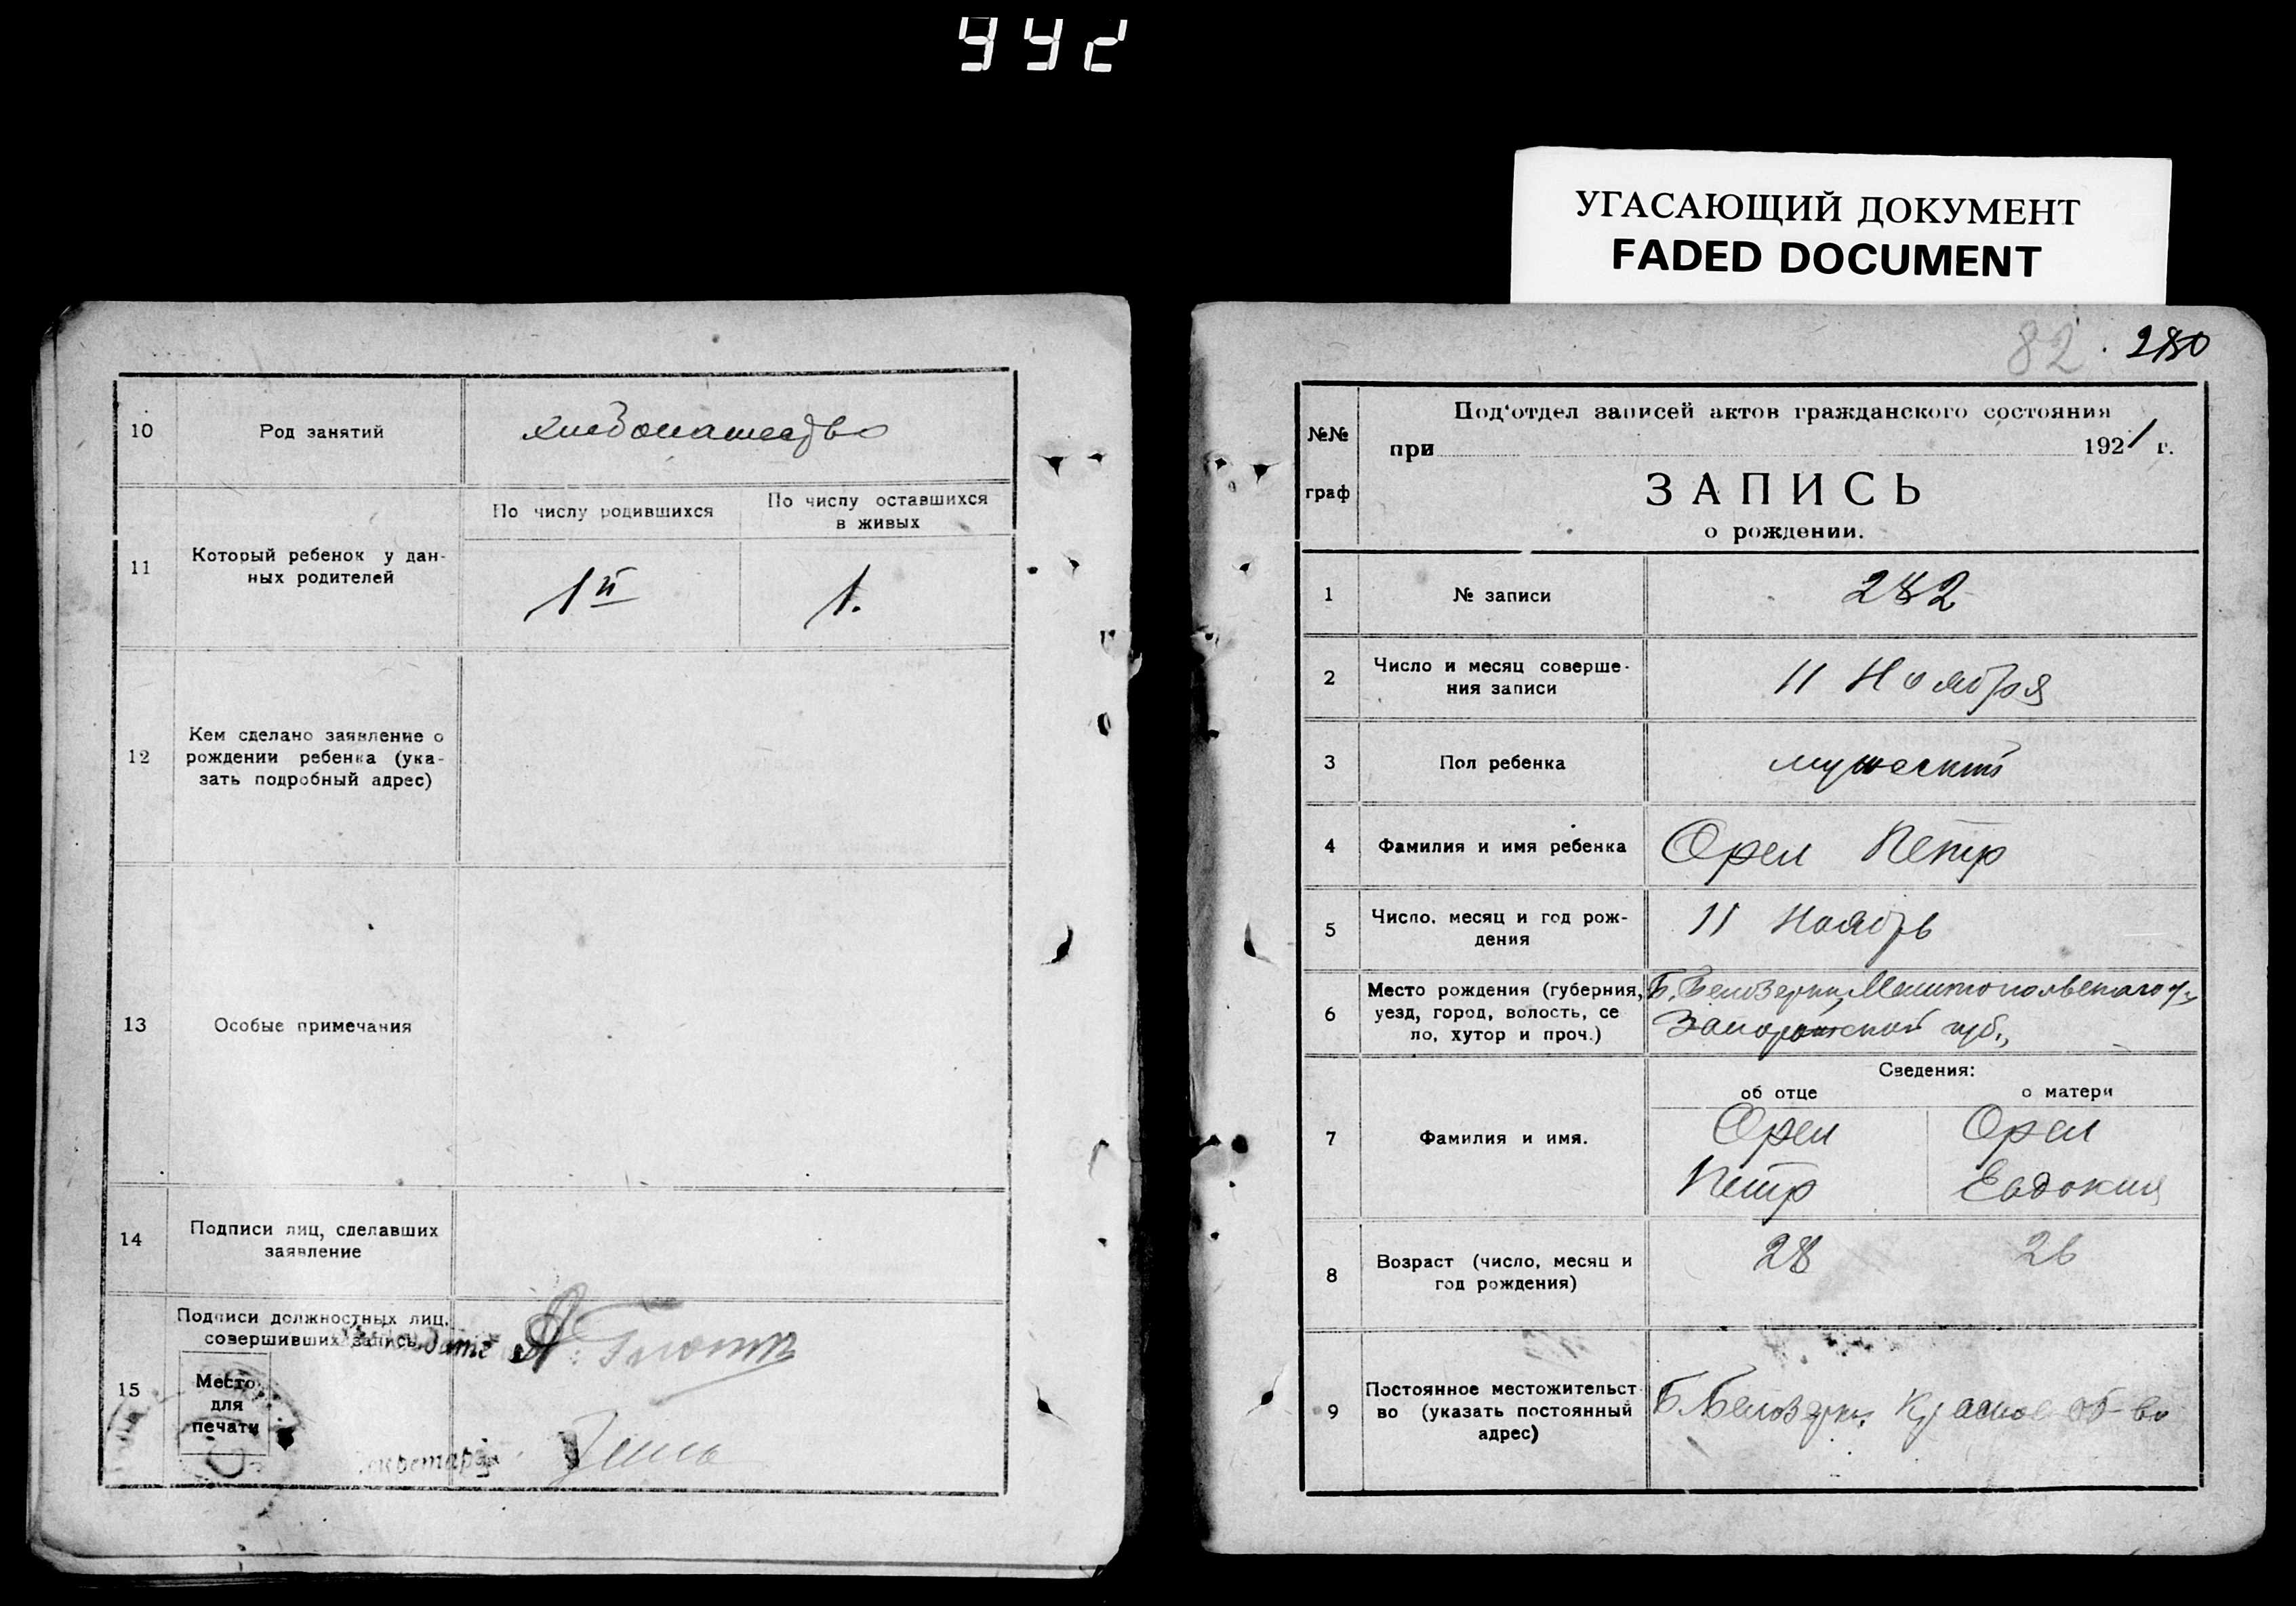 992
УГАСАЮЩИЙ ДОКУМЕНТ
FADED DOCUMENT
10
Род занятий
хлебопашество
11
Который ребенок у дан-
ных родителей
По числу родившихся
По числу оставшихся
в живых
1й
1.
12
Кем сделано заявление о
рождении ребенка (ука-
зать подробный адрес)
13
Особые примечания
14
Подписи лиц, сделавших
заявление
15
Подписи должностных лиц,
совершивших запись.
Место
для
печати
82. 280
№№
граф
Под'отдел записей актов гражданского состояния
при 1921 г.
ЗАПИСЬ
о рождении.
1
№ записи
282
2
Число и месяц соверше-
ния записи
11 Ноября
3
Пол ребенка
мужеский
4
Фамилия и имя ребенка
Орел Петр
5
Число, месяц и год рож-
дения
11 Ноябрь
6
Место рождения (губерния,
уезд, город, волость, се
ло, хутор и проч.)
Б. Белозерки, Мелитопольского у.
Запорожской губ.,
Сведения:
об отце
о матери
7
Фамилия и имя.
Орел
Петр
Орел
Евдокия
8
Возраст (число, месяц и
год рождения)
28
26
9
Постоянное местожительст
во (указать постоянный
адрес)
Б. Белозерки, Красное об-во